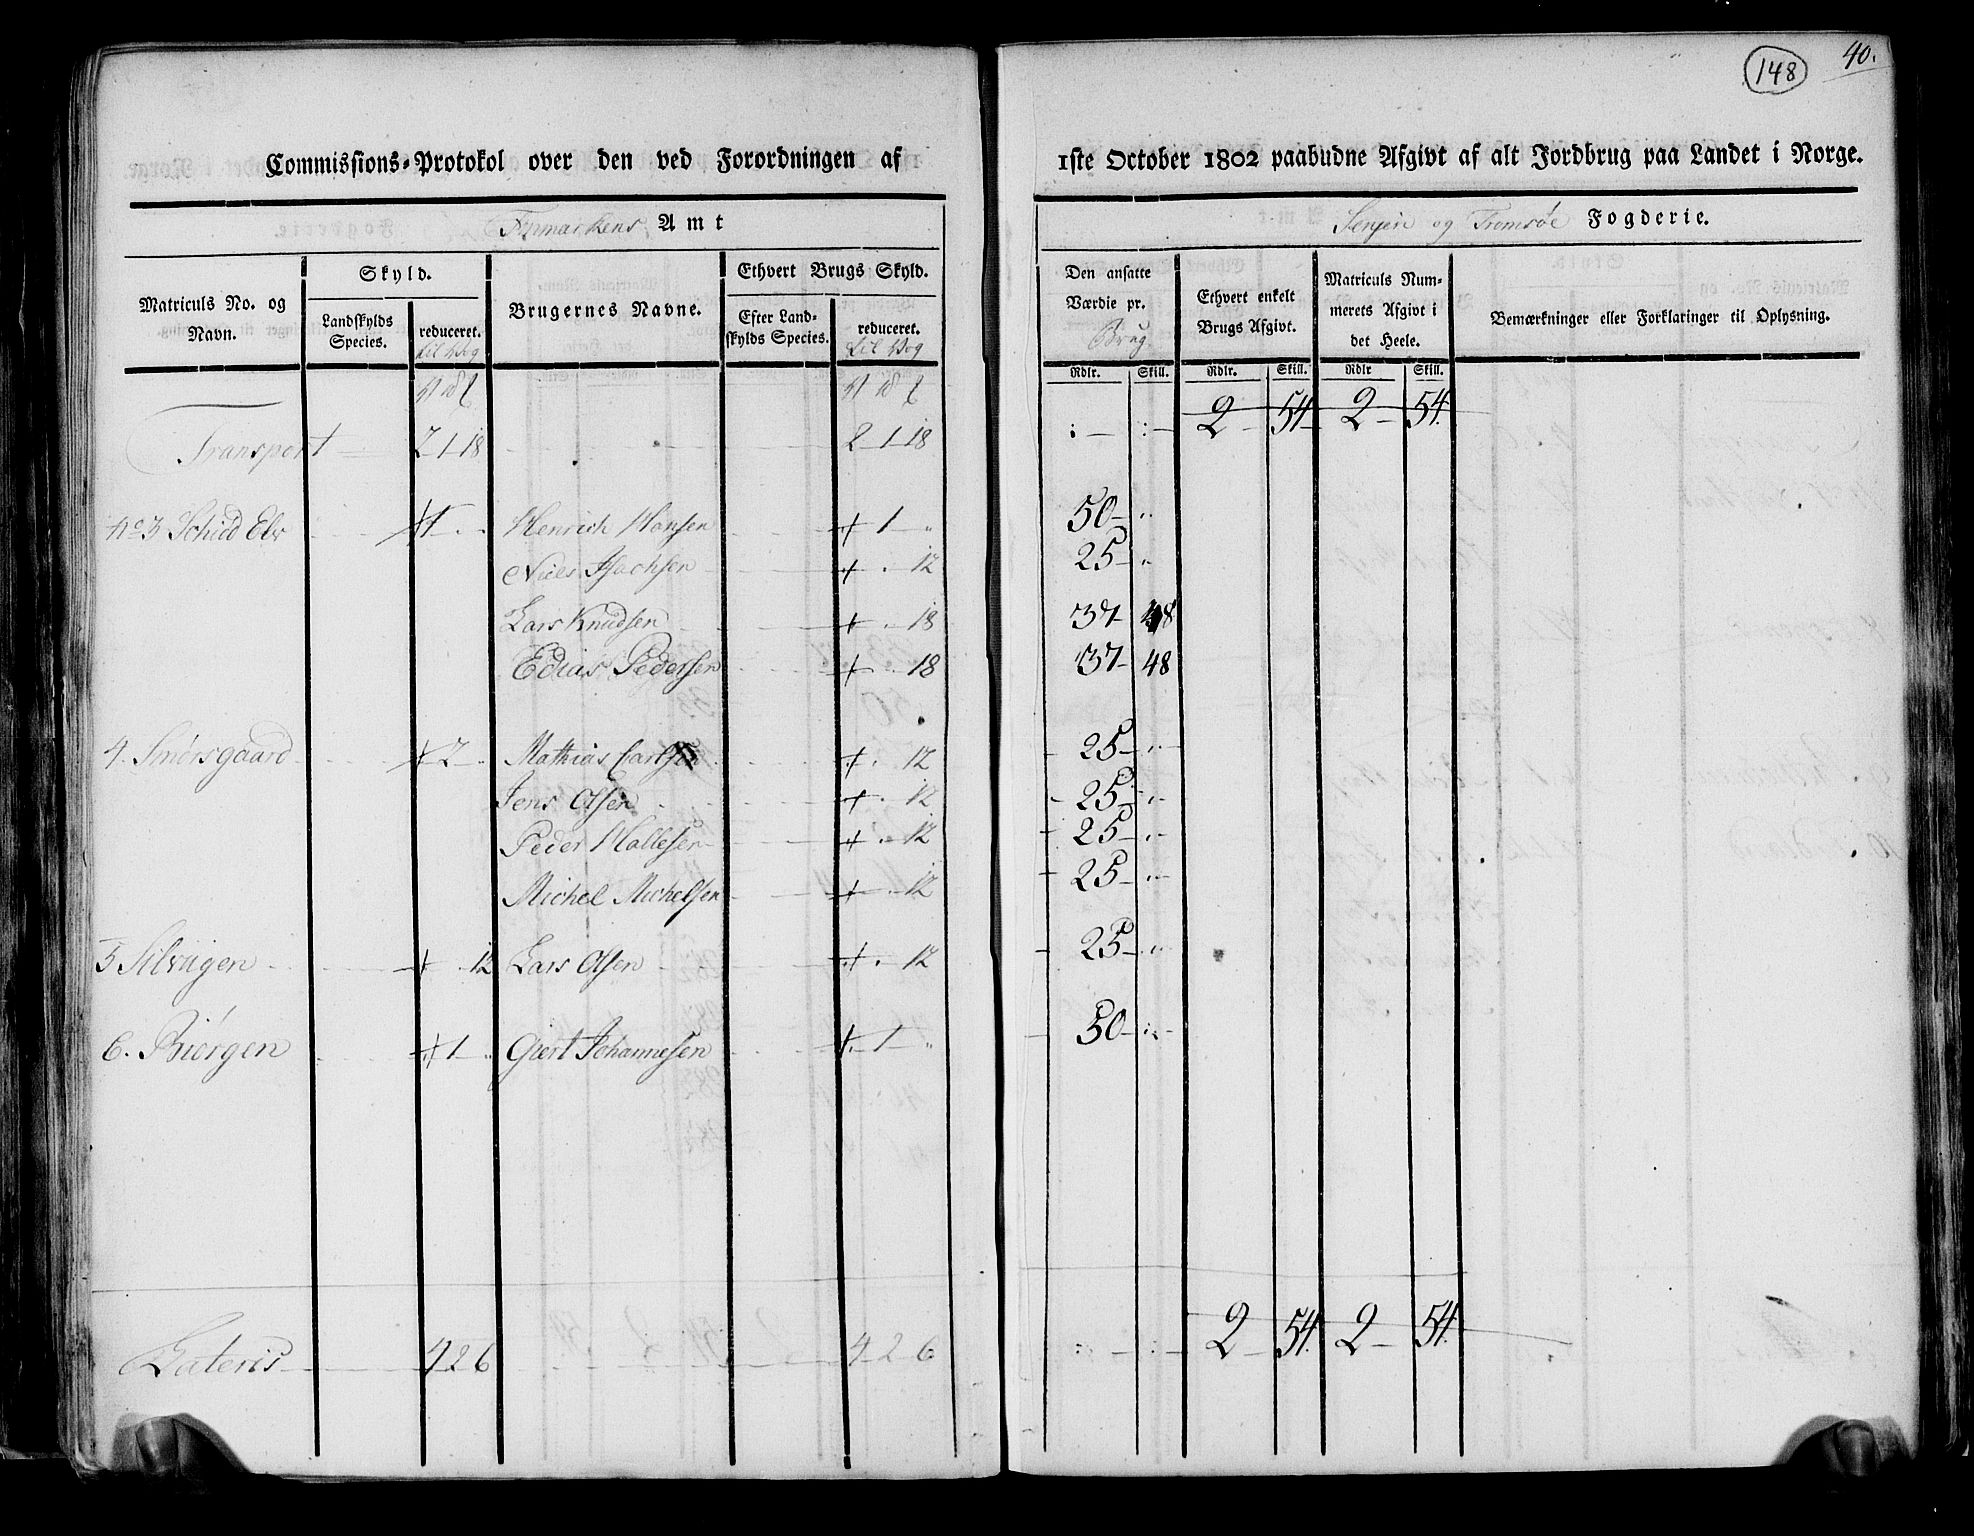 148 40.
Commissions-Protokol over den ved Forordningen af 1ste October 1802 paabudne Afgivt af alt Jordbrug paa Landet i Norge.
Finmarkens Amt Senjen og Tromsöe Fogderie.
Matriculs No. og Navn.
Skyld.
Landskylds Species.
reduceret.
til Vog
Brugernes Navne.
Ethvert Brugs Skyld.
Efter Landskylds Species.
reduceret.
til Vog
Den ansatte Værdie pr.
Brug
Ethvert enkelt Brugs Afgivt.
Matriculs Nummerets Afgivt i det Heele.
Bemærkninger eller Forklaringer til Oplysning.
Rdlr. Skill. Rdlr. Skill. Rdlr Skill.
Transport 2 1 18 2 1 18 2 54 2 54
No 3 Schild Elv 1 Henrich Hansen 1 50
Niels Isachsen 12 25
Lars Knudsen 18 37 48
Edias Pedersen 18 37 48
4. Smörsgaard 2 Mathias Carlsen 12 25
Jens Olsen 12 25
Peder Hallesen 12 25
Michel Michelsen 12 25
5 Silvigen 12 Lars Olsen 12 25
6. Biörgen 1 Giert Johannesen 1 50
Lateris 4 2 6 4 2 6 2 54 2 54